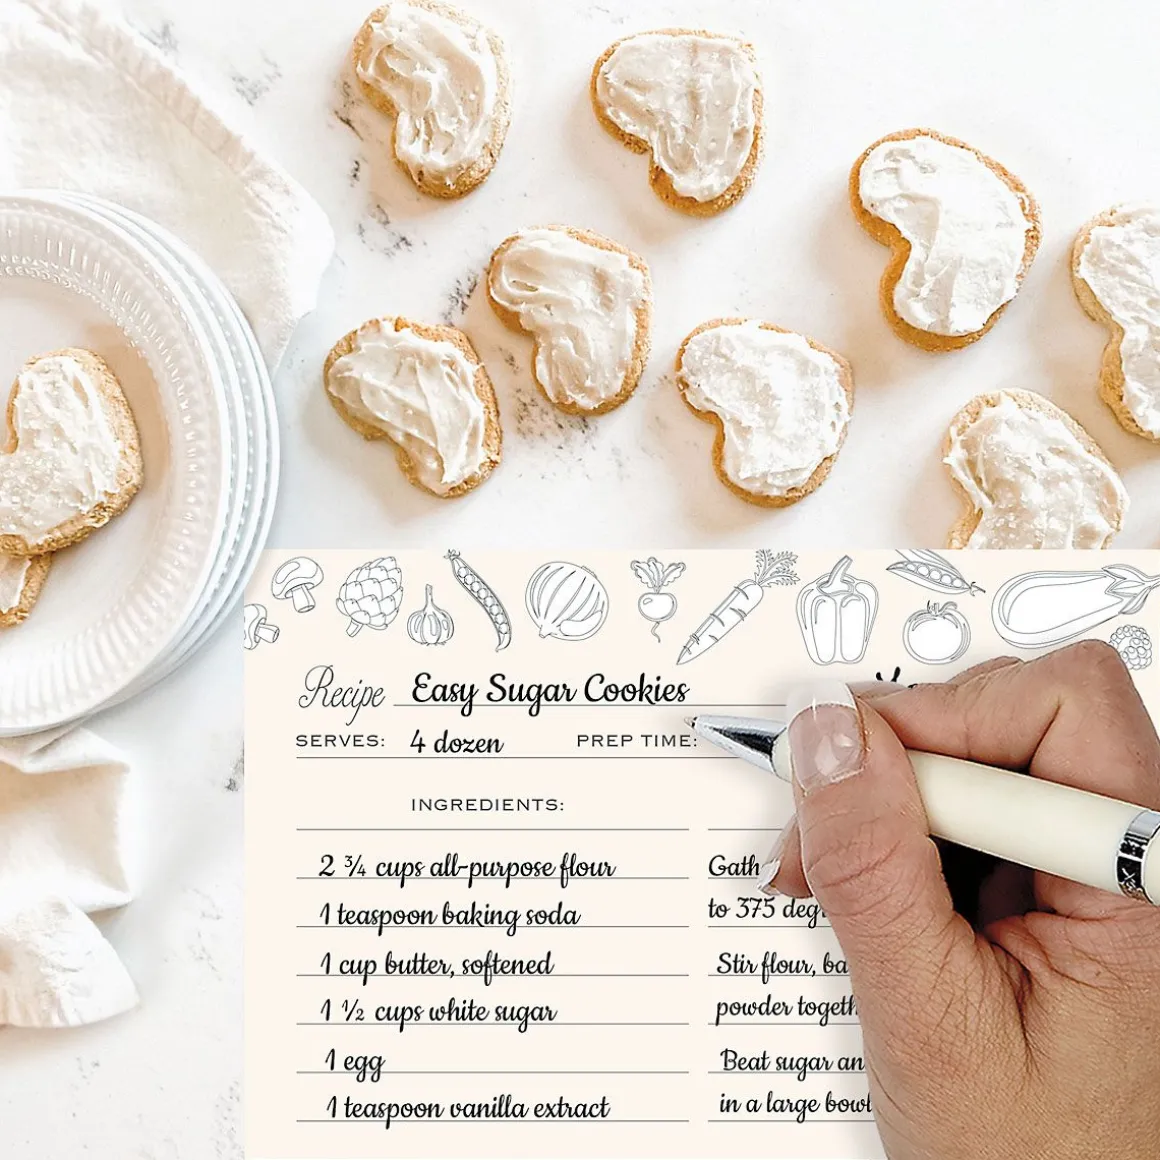 Recipe Easy Sugar Cookies
SERVES: 4 dozen PREP TIME:
INGREDIENTS:
2 ¾ cups all-purpose flour
1 teaspoon baking soda
1 cup butter, softened
1 ½ cups white sugar
1 egg
1 teaspoon vanilla extract
Gath
to 375 deg
Stir flour, ba
powder togeth
Beat sugar an
in a large bowl